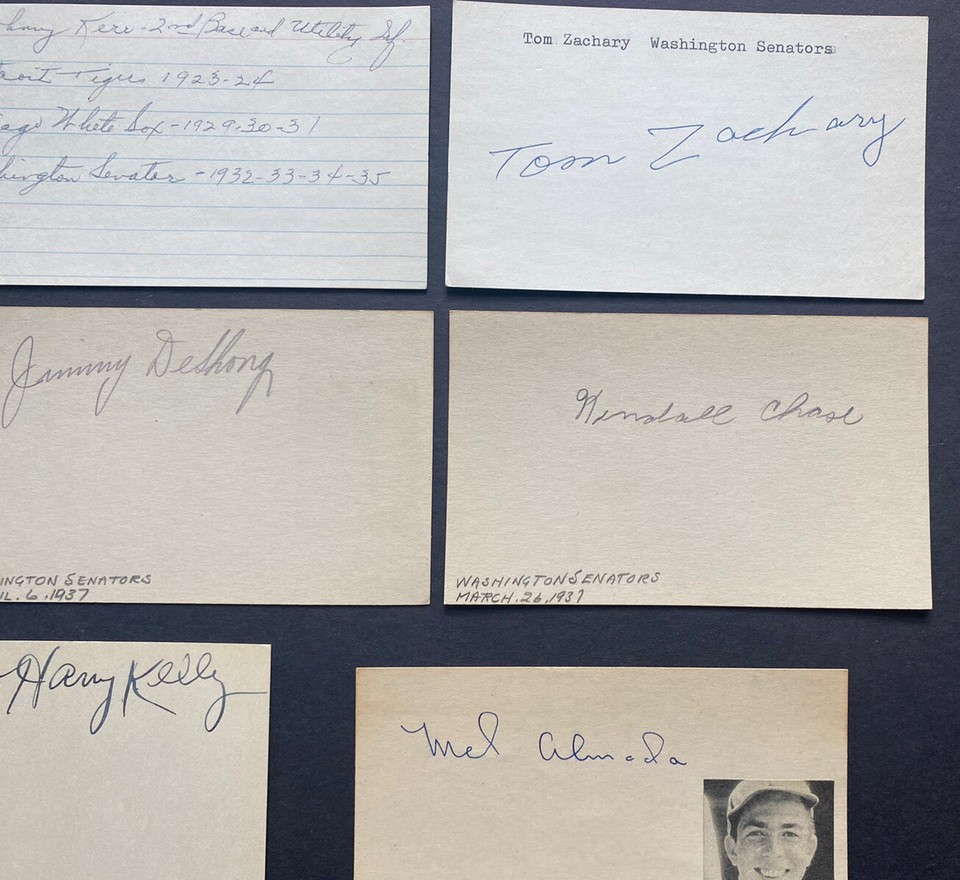 hnny Kerr-2nd Base and Utility Inf.
roit Tigers 1923-24
ago White Sox-1929-30-31
hington Senator -1932-33-34-35
Tom Zachary Washington Senators
Tom Zachary
Jimmy DeShong
INGTON SENATORS
IL. 6.1937
Kendall Chase
WASHINGTON SENATORS
MARCH.26.1937
Harry Kelly
Mel Almada